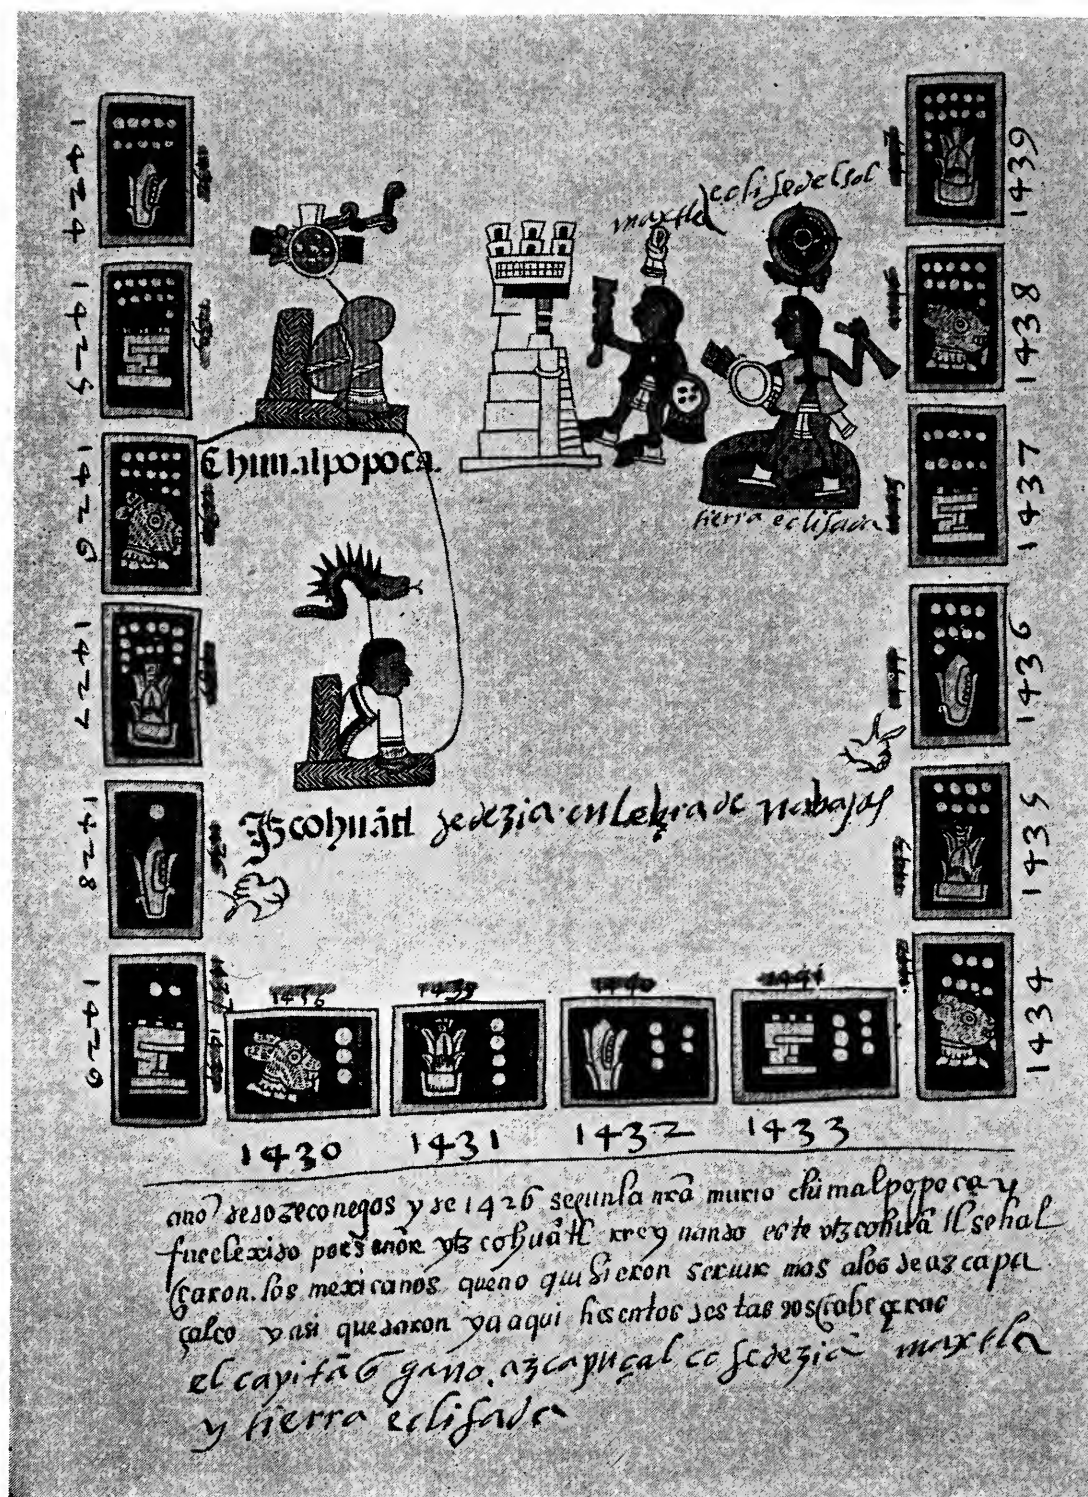 1424
1425
1426
1427
1428
1429
1430
1431
1432
1433
1434
1435
1436
1437
1438
1439
maxtla
eclisedelsol
Chimalpopoca.
tierra eclisada
Yzcohuatl sedezia en lengua de nabajas
1439
1440
1441
año de doze conegos y de 1426 segun la nra murio chimalpopoca y
fue elexido por señor ytzcohuatl rreynando este ytzcohuatl se hal
çaron los mexicanos que no quisieron serui mas alos de azcapu
çalco y asi quedaron ya aqui hesentos destas dos cabeçeras
el capitã q gano azcapuçalco sedezia maxtla
y tierra eclisada